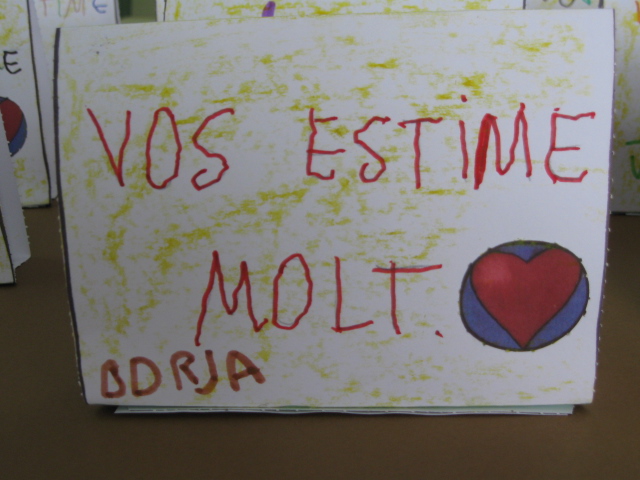 VOS ESTIME
MOLT.
BORJA